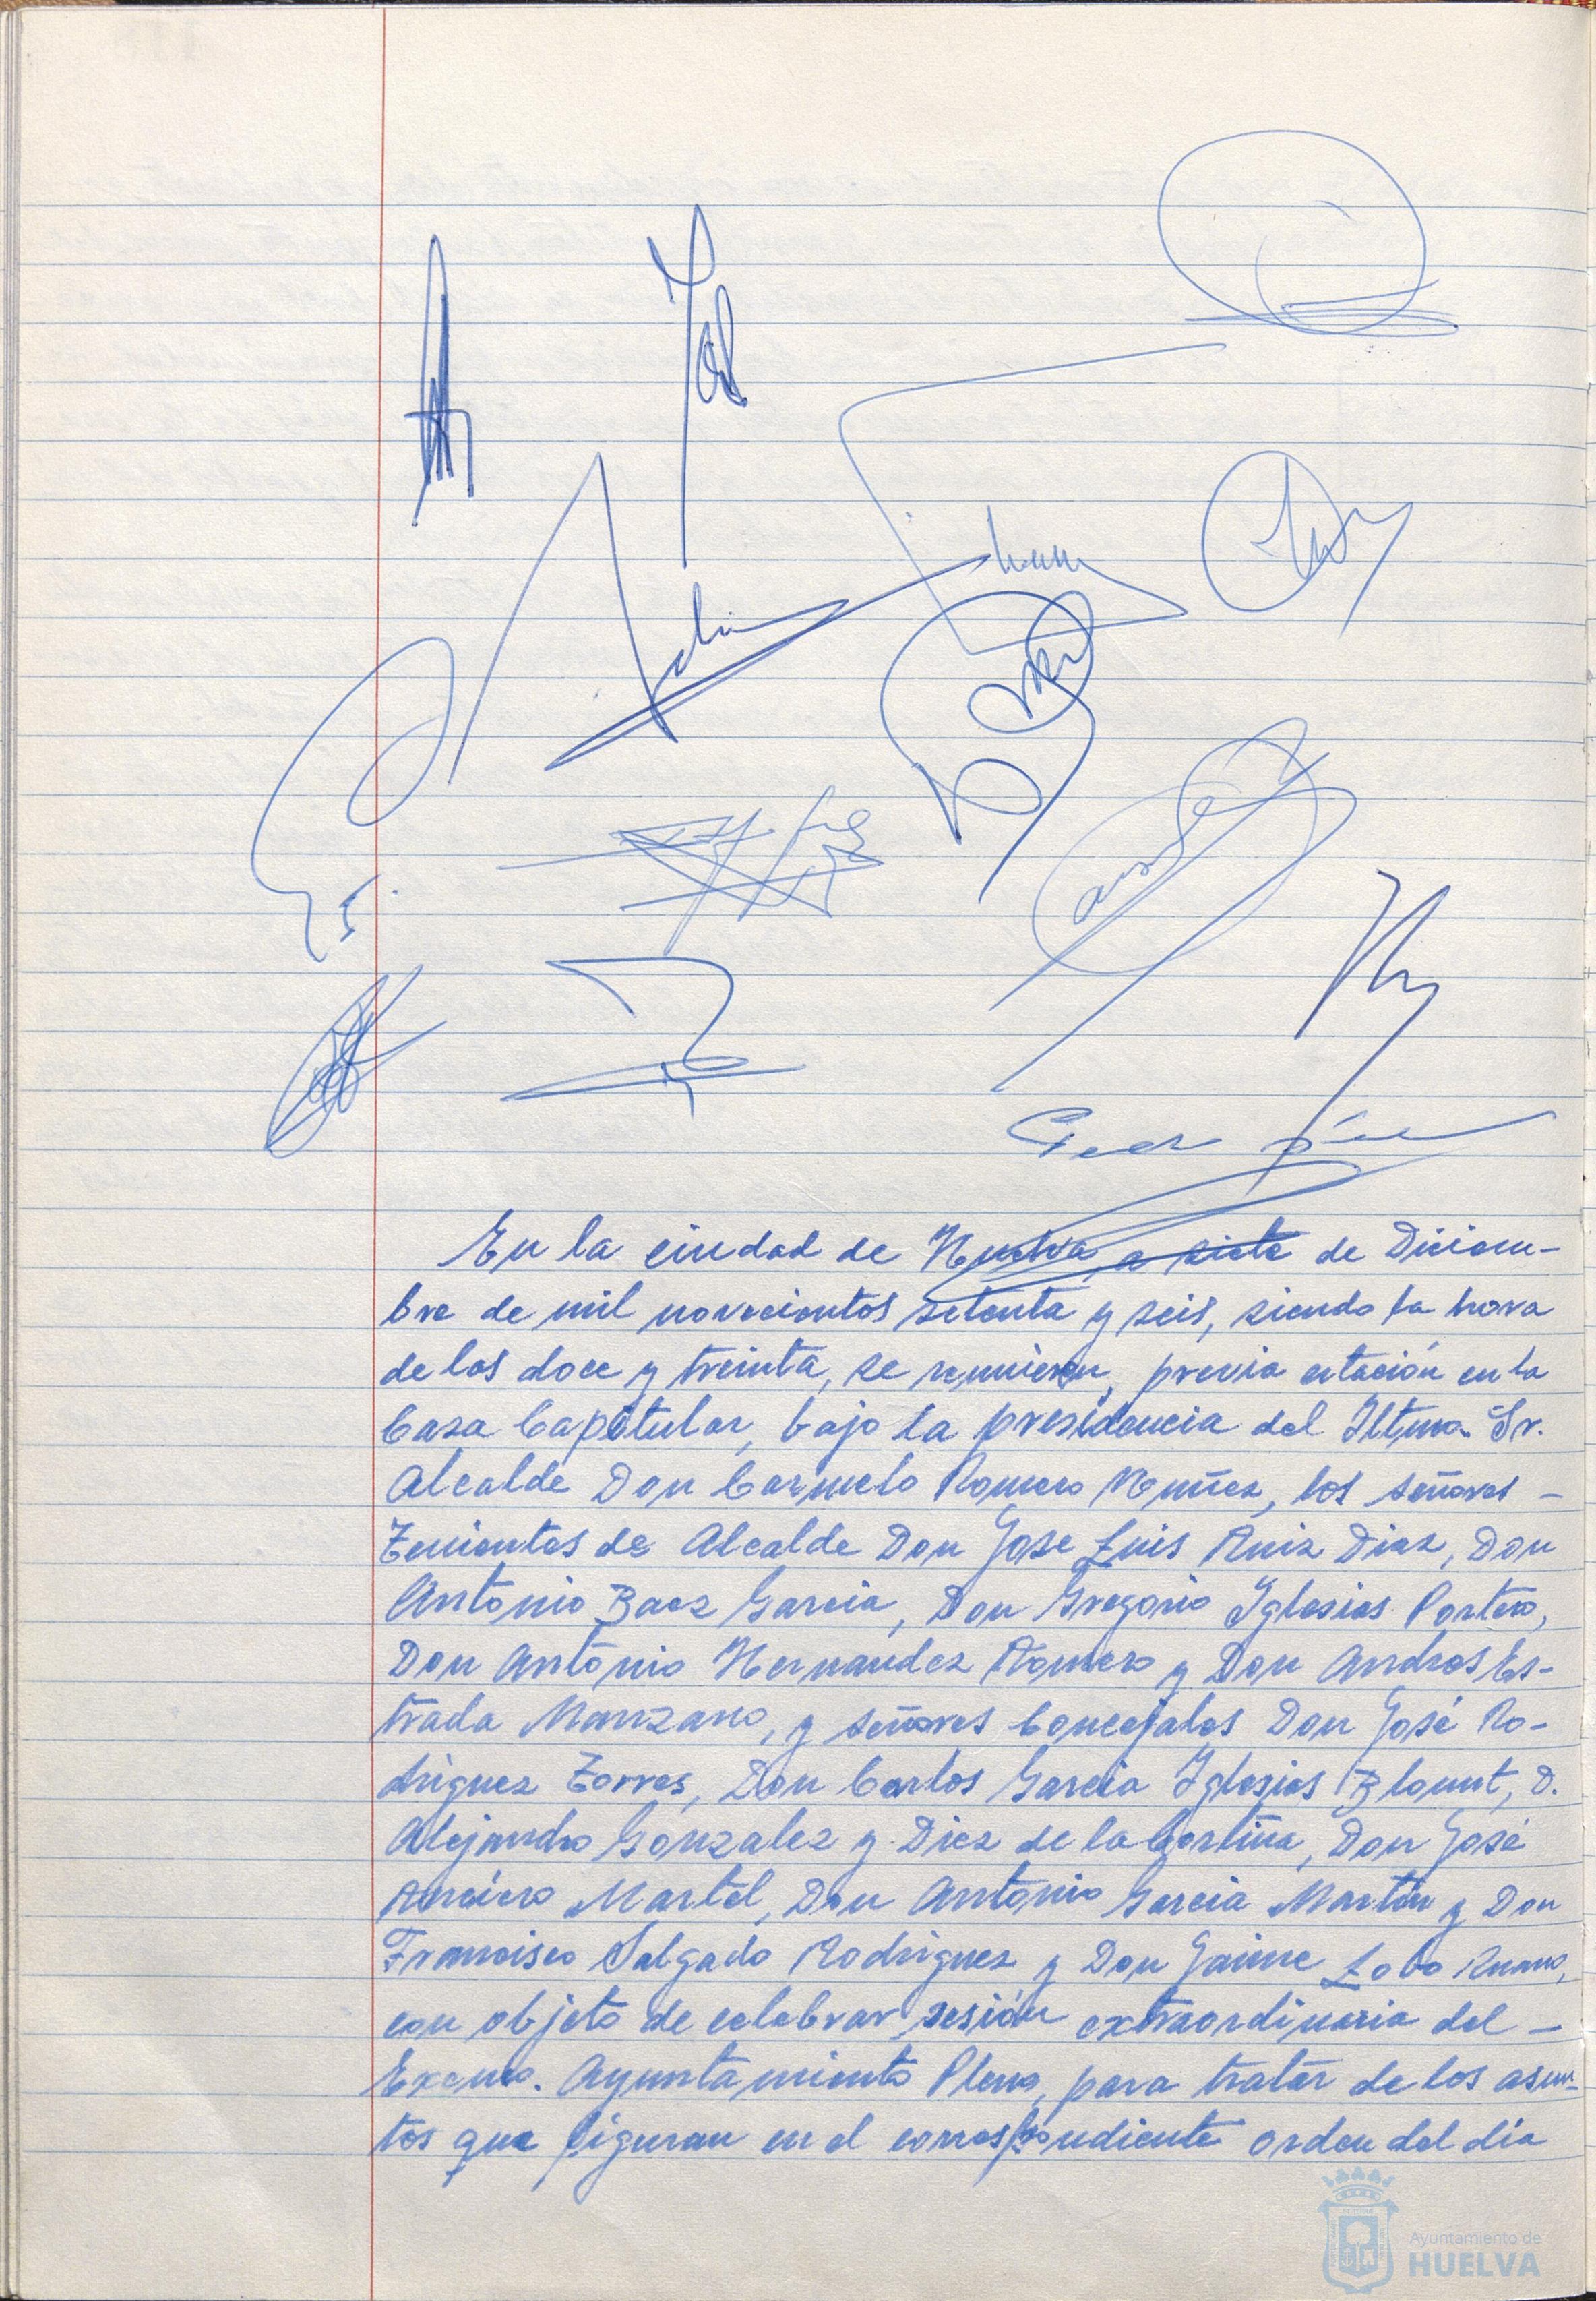 En la ciudad de Huelva a siete de Diciem-
bre de mil novecientos setenta y seis, siendo la hora
de las doce y treinta, se reunieron, previa citación en la
Casa Capitular, bajo la presidencia del Iltmo. Sr.
Alcalde Don Carmelo Romero Nuñez, los señores -
Tenientes de Alcalde Don Jose Luis Ruiz Diaz, Don
Antonio Baez Garcia, Don Gregorio Iglesias Portero,
Don Antonio Hernandez Romero y Don Andres Es-
trada Manzano, y señores Concejales Don José Ro-
driguez Torres, Don Carlos Garcia Iglesias Blount, D.
Alejandro Gonzalez y Diez de la Cortina, Don José
Martel, Don Antonio Garcia Martin y Don
Francisco Salgado Rodriguez y Don Jaime Lobo Ruano,
con objeto de celebrar sesión extraordinaria del -
Excmo. Ayuntamiento Pleno, para tratar de los asun-
tos que figuran en el correspondiente orden del día
Ayuntamiento de
HUELVA